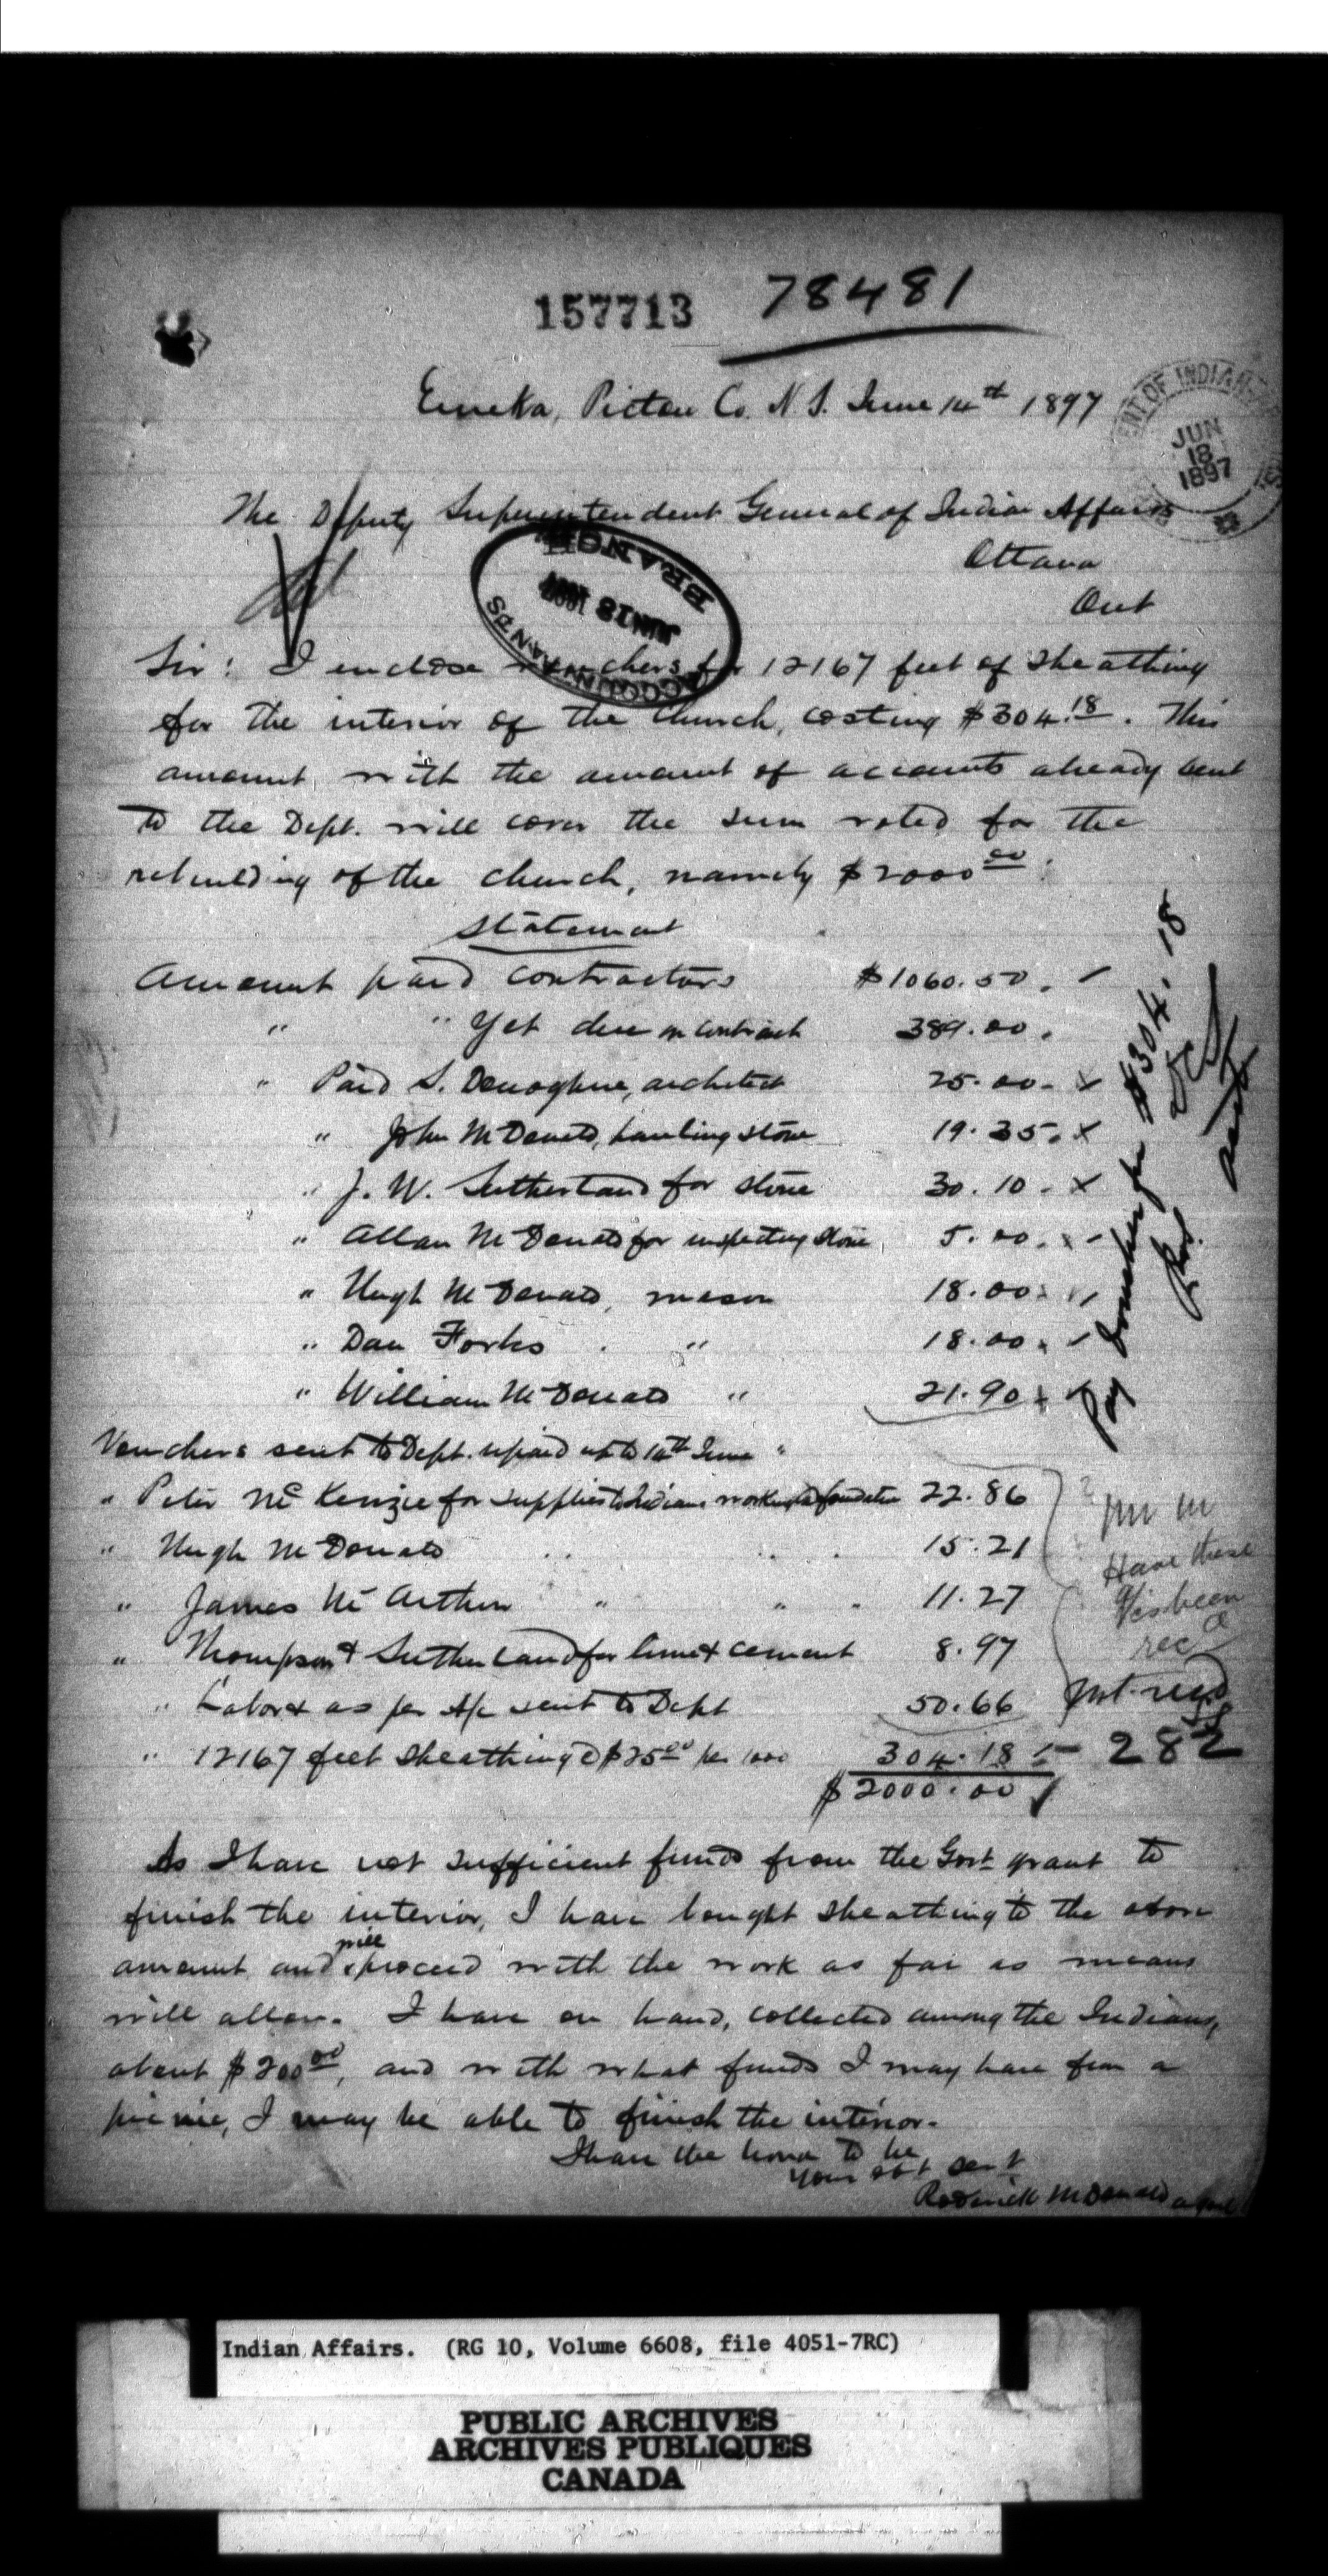 157713 78481
Eureka, Pictou Co. N.S. June 14th 1897
DEPARTMENT OF INDIAN AFFAIRS
JUN
18
1897
The Deputy Superintendent General of Indian Affairs
Ottawa
Ont
ACCOUNTANT'S BRANCH.
JUN 18 1897
Sir: I enclose vouchers for 12167 feet of sheathing
for the interior of the church, costing $304.18. This
amount, with the amount of accounts already sent
to the Dept. will cover the sum voted for the
rebuilding of the church, namely $2000.00.
Statement
Amount paid contractors $1060.50.
" " Yet due on contract 389.00.
" Paid S. Donoghue, architect 25.00. x
" John McDonald, hauling stone 19.35. x
" J. W. Sutherland for stone 30.10. x
" Allan McDonald for inspecting stone 5.00. x
" Hugh McDonald, mason 18.00.
" Dan Forbs " 18.00. x
" William McDonald " 21.90 x
Vouchers sent to Dept. unpaid up to 14th June "
" Peter McKenzie for supplies to Indians working at foundation 22.86
" Hugh McDonald " " 15.21
" James McArthur " " " 11.27
" Thompson & Sutherland for lime & cement 8.97
" Labor as per A/c sent to Dept 50.66
" 12167 feet sheathing @ $25.00 per 1000 304.18 - 282
$2000.00
Pay voucher for $304.18
Have these
been
recd
Not recd
As I have not sufficient funds from the Govt grant to
finish the interior, I have bought sheathing to the above
amount and will proceed with the work as far as means
will allow. I have on hand, collected among the Indians,
about $200.00, and with what funds I may have from a
picnic, I may be able to finish the interior.
I have the honor to be
Your obt servt
Roderick McDonald agent
Indian Affairs. (RG 10, Volume 6608, file 4051-7RC)
PUBLIC ARCHIVES
ARCHIVES PUBLIQUES
CANADA